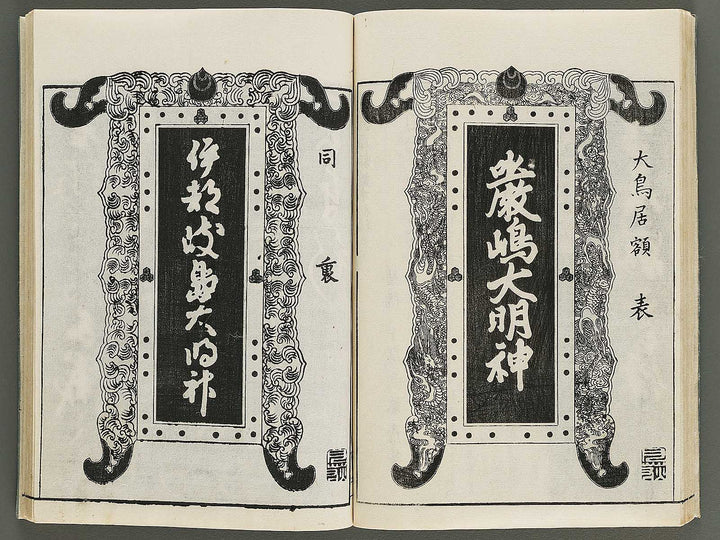 大鳥居額 表
嚴嶋大明神
同 裏
伊都岐島大明神